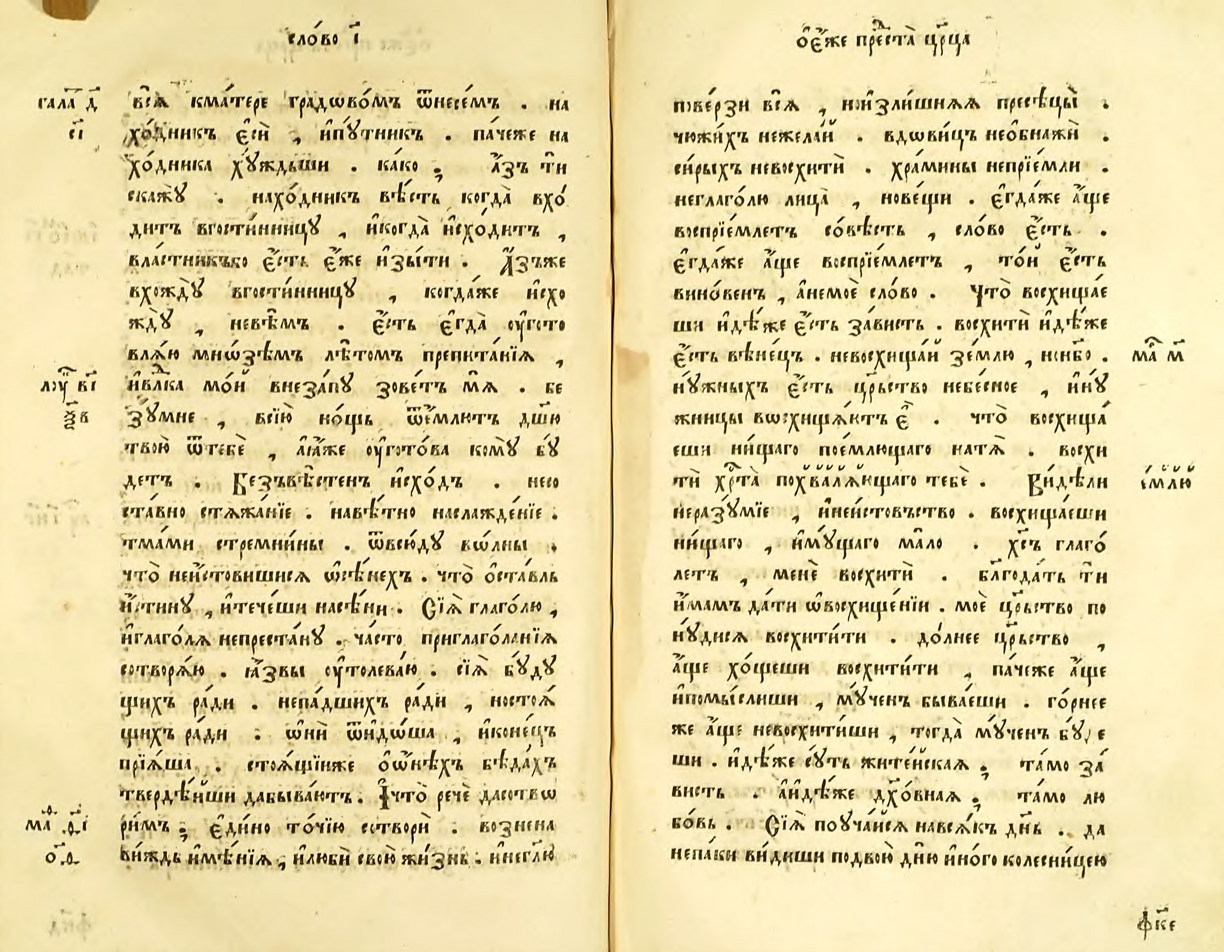 сло́во і҃
гала́ д҃
є҃і
всѧ̀ кма́тере градѡво́мъ ѿнесе́мъ . на
хо́дникъ є҆сѝ , и҆пꙋ́тникъ . па́чеже на
хо́дника хꙋ́ждьши . ка́ко ; а҆́зъ ти
скажꙋ̀ . нахо́дникъ вѣ́сть когда̀ вхо́
дитъ вгости́нницꙋ , и҆когда̀ и҆схо́дитъ ,
вла́стникъко є҆́сть є҆́же и҆зы́ти . А҆́зъже
вхождꙋ̀ вгости́нницꙋ , когда́же и҆схо
ждꙋ̀ , невѣ́мъ . є҆́сть є҆гда̀ ᲂу҆гото
влѧ́ю мнѡ́зѣмъ лѣ́томъ препита́нїѧ ,
лꙋ҃ в҃і
и҆влⷣка мо́й внеза́пꙋ зове́тъ мѧ̀ . бе
ѯ҃в
зꙋ́мне , всїю̀ но́щь ѿе́млютъ дш҃ю
твою̀ ѿтебѐ , а҆ꙗ҆́же ᲂу҆гото́ва комꙋ̀ бꙋ́
детъ . Безъвѣ́стенъ и҆схо́дъ . несо
ста́вно стѧжа́нїе . навѣ́тно наслажде́нїе .
тма́ми стремни́ны . ѿвсю́дꙋ вѡ́лны .
что̀ неи́стовишисѧ ѡ҆сѣ́нехъ . что̀ ѡ҆ста́вль
и҆́стинꙋ , и҆тече́ши насѣ́ни . Сїѧ̀ глаго́лю ,
и҆глаго́лѧ непреста́нꙋ . ча́сто приглаго́ланїѧ
сотворѧ́ю . ꙗ҆́звы ᲂу҆толева́ю . сїѧ̀ бꙋ́дꙋ
щихъ ра́ди . непа́дшихъ ра́ди , ностоѧ́
щихъ ра́ди . ѡ҆нѝ ѿидо́ша , и҆коне́цъ
прїѧ́ша . стоѧ́щїиже ѡ҆ѡ҆́нѣхъ бѣда́хъ
тверде́йши дабыва́ютъ . И҆что̀ речѐ дасотво
ма
ри́мъ ; є҆ди́но то́чїю сотворѝ . вознена
ви́ждь и҆мѣ́нїѧ , и҆любѝ свою̀ жи́знь . и҆неглю
ѡ҆є҆́же преⷣста̀ цр҃ца
пове́рзи всѧ̀ , ноизли́шнѧѧ пресѣцы̀ .
чюжи́хъ нежела́й . вдови́цъ неѡбнажѝ .
си́рыхъ невосхитѝ . хра́мины непрїе́мли .
неглаго́лю лица̀ , нове́щи . є҆гда́же а҆́ще
воспрїе́млетъ со́вѣсть , сло́во є҆́сть .
є҆гда́же а҆́ще воспрїе́млетъ , то́й є҆́сть
вино́венъ , а҆немоѐ сло́во . Что̀ восхища́е
ши и҆дѣ́же є҆́сть за́висть . восхитѝ и҆дѣ́же
є҆́сть вѣне́цъ . невосхища́й зе́млю , нонб҃о .
нꙋ́жныхъ є҆́сть црⷭ҇тво небе́сное , и҆нꙋ́
жницы вѡсхища́ютъ є҆̀ . что̀ восхища́
еши ни́щаго пое́млющаго натѧ̀ . восхи
тѝ хрⷭ҇та̀ похва́лѧющаго тебѐ . Ви́дѣли
неразꙋ́мїе , и҆неи́стовъство . восхища́еши
ни́щаго , и҆мꙋ́щаго ма́ло . хс҃ъ глаго́
летъ , менѐ восхитѝ . блг҃ода́ть ти
и҆́мамъ да́ти ѡ҆восхище́нїи . моѐ црⷭ҇тво по
нꙋ́дисѧ восхити́ти . до́лнее црⷭ҇тво ,
а҆́ще хо́щеши восхити́ти , па́чеже а҆́ще
и҆помы́слиши , мꙋ́ченъ быва́еши . го́рнее
же а҆́ще невосхити́ши , тогда̀ мꙋ́ченъ бꙋ́де
ши . и҆дѣ́же сꙋ́ть жите́йскаѧ ; та́мо за́
висть . а҆и҆дѣ́же дх҃о́внаѧ ; та́мо лю
бо́вь . Сїѧ̀ поꙋча́йсѧ навсѧ́къ дн҃ь . да
непа́ки ви́диши подвою̀ дн҃ю и҆но́го колесни́цею
ма҃ м҃
фк҃е